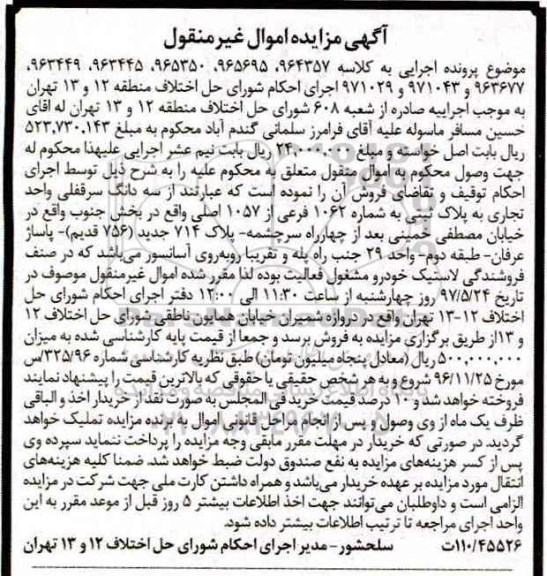 آگهی مزایده اموال غیر منقول
موضوع پرونده اجرایی به کلاسه ۹۶۴۳۵۷، ۹۶۵۶۹۵، ۹۶۵۳۵۰، ۹۶۳۴۴۵، ۹۶۳۴۴۹،
۹۶۳۶۷۷ و ۹۷۱۰۴۳ و ۹۷۱۰۲۹ اجرای احکام شورای حل اختلاف منطقه ۱۲ و ۱۳ تهران
به موجب اجراییه صادره از شعبه ۶۰۸ شورای حل اختلاف منطقه ۱۲ و ۱۳ تهران له اقای
حسین مسافر ماسوله علیه آقای فرامرز سلمانی گندم آباد محکوم به مبلغ ۵۲۳,۷۳۰,۱۴۳
ریال بابت اصل خواسته و مبلغ ۲۴,۰۰۰,۰۰۰ ریال بابت نیم عشر اجرایی علیهذا محکوم له
جهت وصول محکوم به اموال منقول متعلق به محکوم علیه را به شرح ذیل توسط اجرای
احکام توقیف و تقاضای فروش آن را نموده است که عبارتند از سه دانگ سرقفلی واحد
تجاری به پلاک ثبتی به شماره ۱۰۶۲ فرعی از ۱۰۵۷ اصلی واقع در بخش جنوب واقع در
خیابان مصطفی خمینی بعد از چهارراه سرچشمه- پلاک ۷۱۴ جدید (۷۵۶ قدیم)- پاساژ
عرفان- طبقه دوم- واحد ۲۹ جنب راه پله و تقریبا روبه‌روی آسانسور می‌باشد که در صنف
فروشندگی لاستیک خودرو مشغول فعالیت بوده لذا مقرر شده اموال غیرمنقول موصوف در
تاریخ ۹۷/۵/۲۴ روز چهارشنبه از ساعت ۱۱:۳۰ الی ۱۲:۰۰ دفتر اجرای احکام شورای حل
اختلاف ۱۲-۱۳ تهران واقع در دروازه شمیران خیابان همایون ناطقی شورای حل اختلاف ۱۲
و ۱۳از طریق برگزاری مزایده به فروش برسد و جمعا از قیمت پایه کارشناسی شده به میزان
۵۰۰,۰۰۰,۰۰۰ ریال (معادل پنجاه میلیون تومان) طبق نظریه کارشناسی شماره ۳۲۵/۹۶/س
مورخ ۹۶/۱۱/۲۵ شروع و به هر شخص حقیقی یا حقوقی که بالاترین قیمت را پیشنهاد نمایند
فروخته خواهد شد و ۱۰ درصد قیمت خرید فی المجلس به صورت نقد از خریدار اخذ و الباقی
ظرف یک ماه از وی وصول و پس از انجام مراحل قانونی اموال به برنده مزایده تملیک خواهد
گردید. در صورتی که خریدار در مهلت مقرر مابقی وجه مزایده را پرداخت ننماید سپرده وی
پس از کسر هزینه‌های مزایده به نفع صندوق دولت ضبط خواهد شد. ضمنا کلیه هزینه‌های
انتقال مورد مزایده بر عهده خریدار می‌باشد و همراه داشتن کارت ملی جهت شرکت در مزایده
الزامی است و داوطلبان می‌توانند جهت اخذ اطلاعات بیشتر ۵ روز قبل از موعد مقرر به این
واحد اجرای مراجعه تا ترتیب اطلاعات بیشتر داده شود.
۱۱۰/۴۵۵۲۶ت سلحشور- مدیر اجرای احکام شورای حل اختلاف ۱۲ و ۱۳ تهران